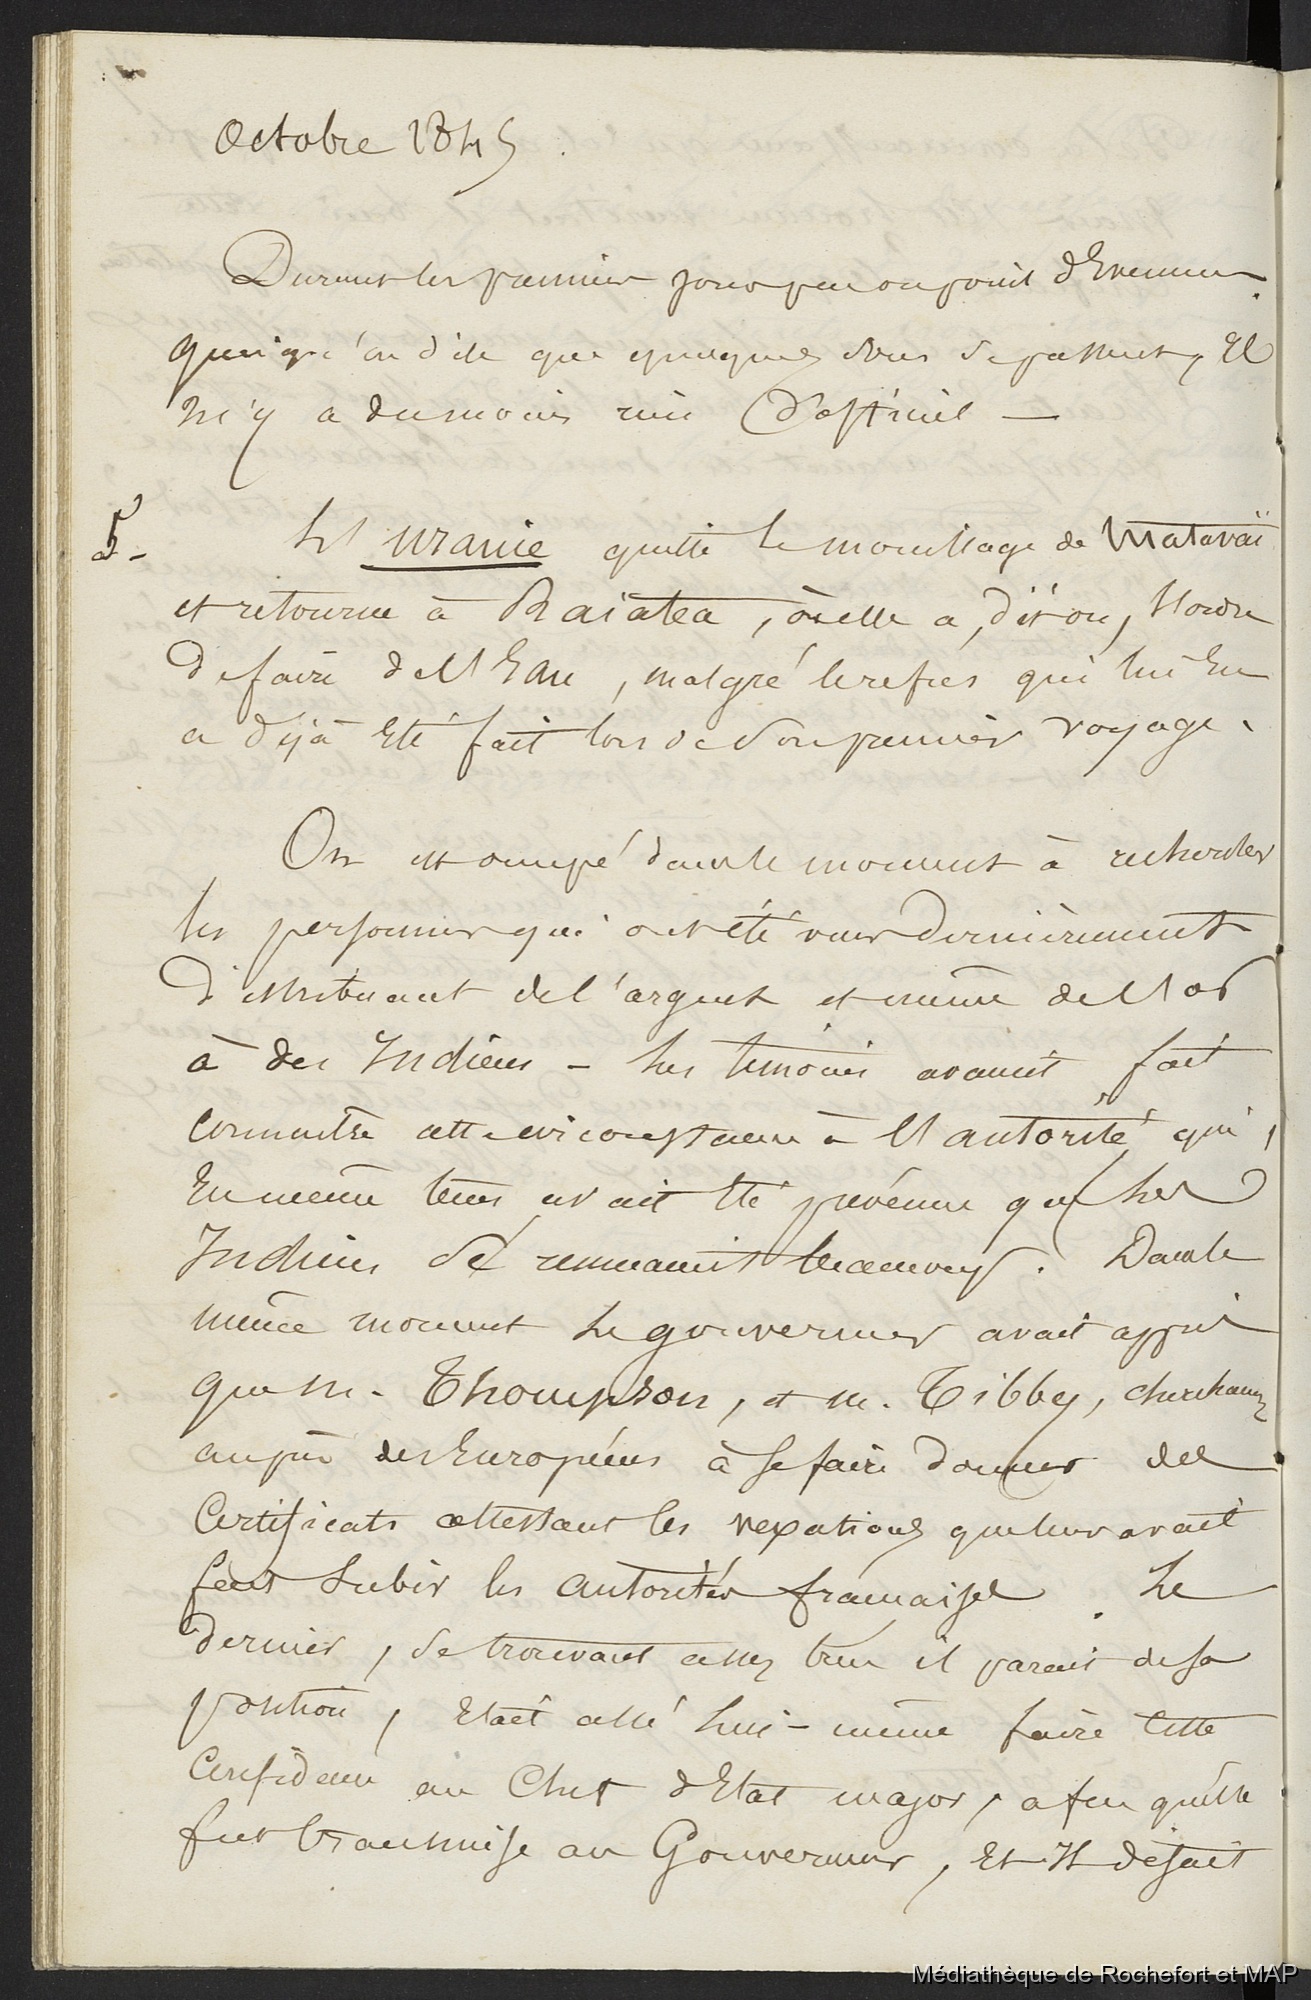 Octobre 1845.
Durant les premiers jours peu ou point d'Evenemens.
quoiqu'on dise que quelques uns se passent, Il
n'y a du moins rien d'officiel —
5.- L'Uranie quitte le mouillage de Matavaï
et retourne à Raiatea, où elle a, dit-on, l'ordre
de faire de l'Eau, malgré le refus qui lui En
a déjà Eté fait lors de son premier voyage.
On est occupé dans le moment à rechercher
les personnes qui ont été vues dernièrement
distribuant de l'argent et même de l'or
à des Indiens - Les témoins avaient fait
connaitre cette circonstance à l'autorité qui,
En même tems avait Eté prévenue que les
Indiens se remuaient beaucoup. Dans le
même moment le gouverneur avait appris
que M. Thompson, et M. Tibby, cherchaient
auprès des Européens à se faire donner des
Certificats attestant les vexations que leur avait
fait subir les autorités françaises. Le
dernier, se trouvant assez bien il parait de sa
position, Etait allé lui-même faire cette
Confidence au Chef d'Etat major, afin qu'elle
fut transmise au Gouverneur, Et Il disait
Médiathèque de Rochefort et MAP